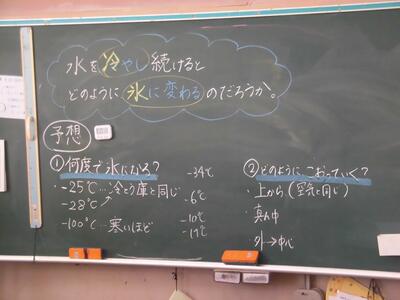 水を冷やし続けると
どのように氷に変わるのだろうか。
予想
①何度で氷になる?
・-25℃…冷とう庫と同じ
・-28℃
・-100℃…寒いほど
-34℃
-6℃
-10℃
-17℃
②どのように、こおっていく?
・上から(空気と同じ)
・真ん中
・外→中心